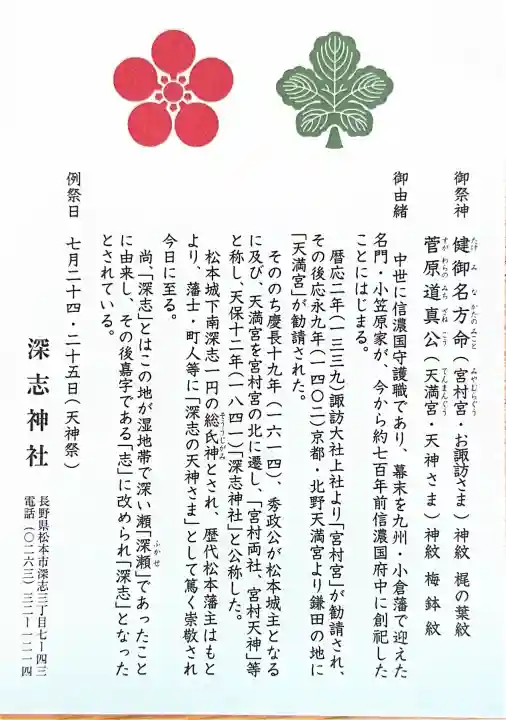 御祭神 健御名方命(宮村宮・お諏訪さま)神紋 梶の葉紋
たけみなかたのみこと みやむらぐう
菅原道真公(天満宮・天神さま)神紋 梅鉢紋
すがわらのみちざねこう てんまんぐう
御由緒
中世に信濃国守護職であり、幕末を九州・小倉藩で迎えた
名門・小笠原家が、今から約七百年前信濃国府中に創祀した
ことにはじまる。
暦応二年(一三三九)諏訪大社上社より「宮村宮」が勧請され、
その後応永九年(一四〇二)京都・北野天満宮より鎌田の地に
「天満宮」が勧請された。
そののち慶長十九年(一六一四)、秀政公が松本城主となる
に及び、天満宮を宮村宮の北に遷し、「宮村両社、宮村天神」等
と称し、天保十二年(一八四一)「深志神社」と公称した。
松本城下南深志一円の総氏神とされ、歴代松本藩主はもと
そううじがみ
より、藩士・町人等に「深志の天神さま」として篤く崇敬され
今日に至る。
尚、「深志」とはこの地が湿地帯で深い瀬「深瀬」であったこと
ふかせ
に由来し、その後嘉字である「志」に改められ「深志」となった
とされている。
例祭日 七月二十四・二十五日(天神祭)
深志神社
長野県松本市深志三丁目七ー四三
電話(〇二六三)三二ー一二一四